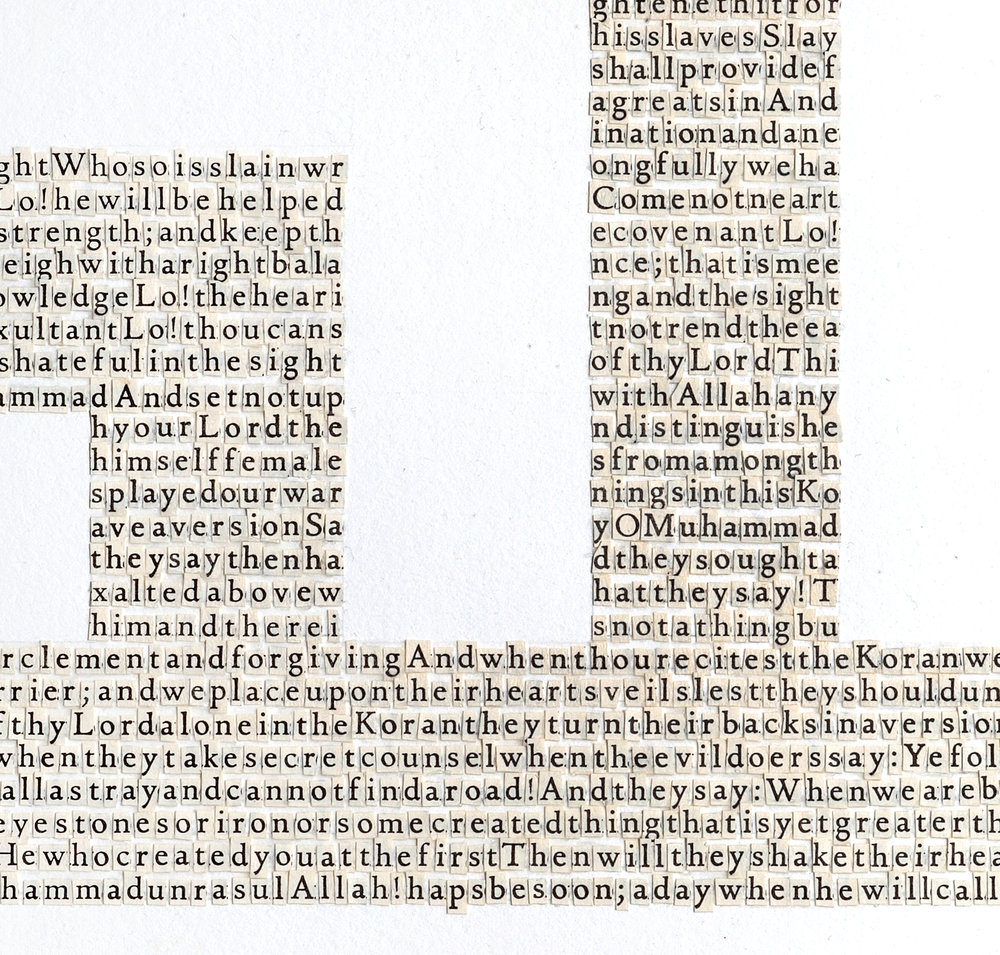 ghtenethitfor
hisslavesSlay
shallprovidef
agreatsinAnd
inationandane
ghtWhosoisslainwr ongfullyweha
Lo!hewillbehelped Comenotneart
strength;andkeepth ecovenantLo!
eighwitharightbala nce;thatismee
owledgeLo!theheari ngandthesight
xultantLo!thoucans tnotrendtheea
shatefulinthesight ofthyLordThi
ammadAndsetnotup withAllahany
hyourLordthe ndistinguishe
himselffemale sfromamongth
splayedourwar ningsinthisKo
aveaversionSa yOMuhammad
theysaythenha dtheysoughta
xaltedabovew hattheysay!T
himandtherei snotathingbu
rclementandforgivingAndwhenthourecitesttheKoranwe
rrier;andweplaceupontheirheartsveilslesttheyshouldun
fthyLordaloneintheKorantheyturntheirbacksinaversion
whentheytakesecretcounselwhentheevildoerssay:Yefol
allastrayandcannotfindaroad!Andtheysay:Whenweareb
eyestonesorironorsomecreatedthingthatisyetgreaterth
Hewhocreatedyouatthe firstThenwilltheyshaketheirhea
hammadunrasulAllah!hapsbesoon;adaywhenhewillcall